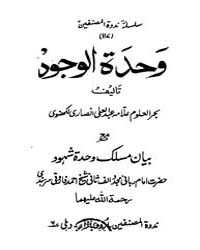 سلسلۂ ندوۃ المصنفین
وحدۃ الوجود
تالیف
بحر العلوم علامہ عبد العلی انصاری لکھنوی
مع
بیان مسلک وحدۃ شہود
حضرت امام ربانی مجدد الف ثانی شیخ احمد فاروقی سرہندی
رحمۃ اللہ علیہما
ندوۃ المصنفین اردو بازار دہلی ۶